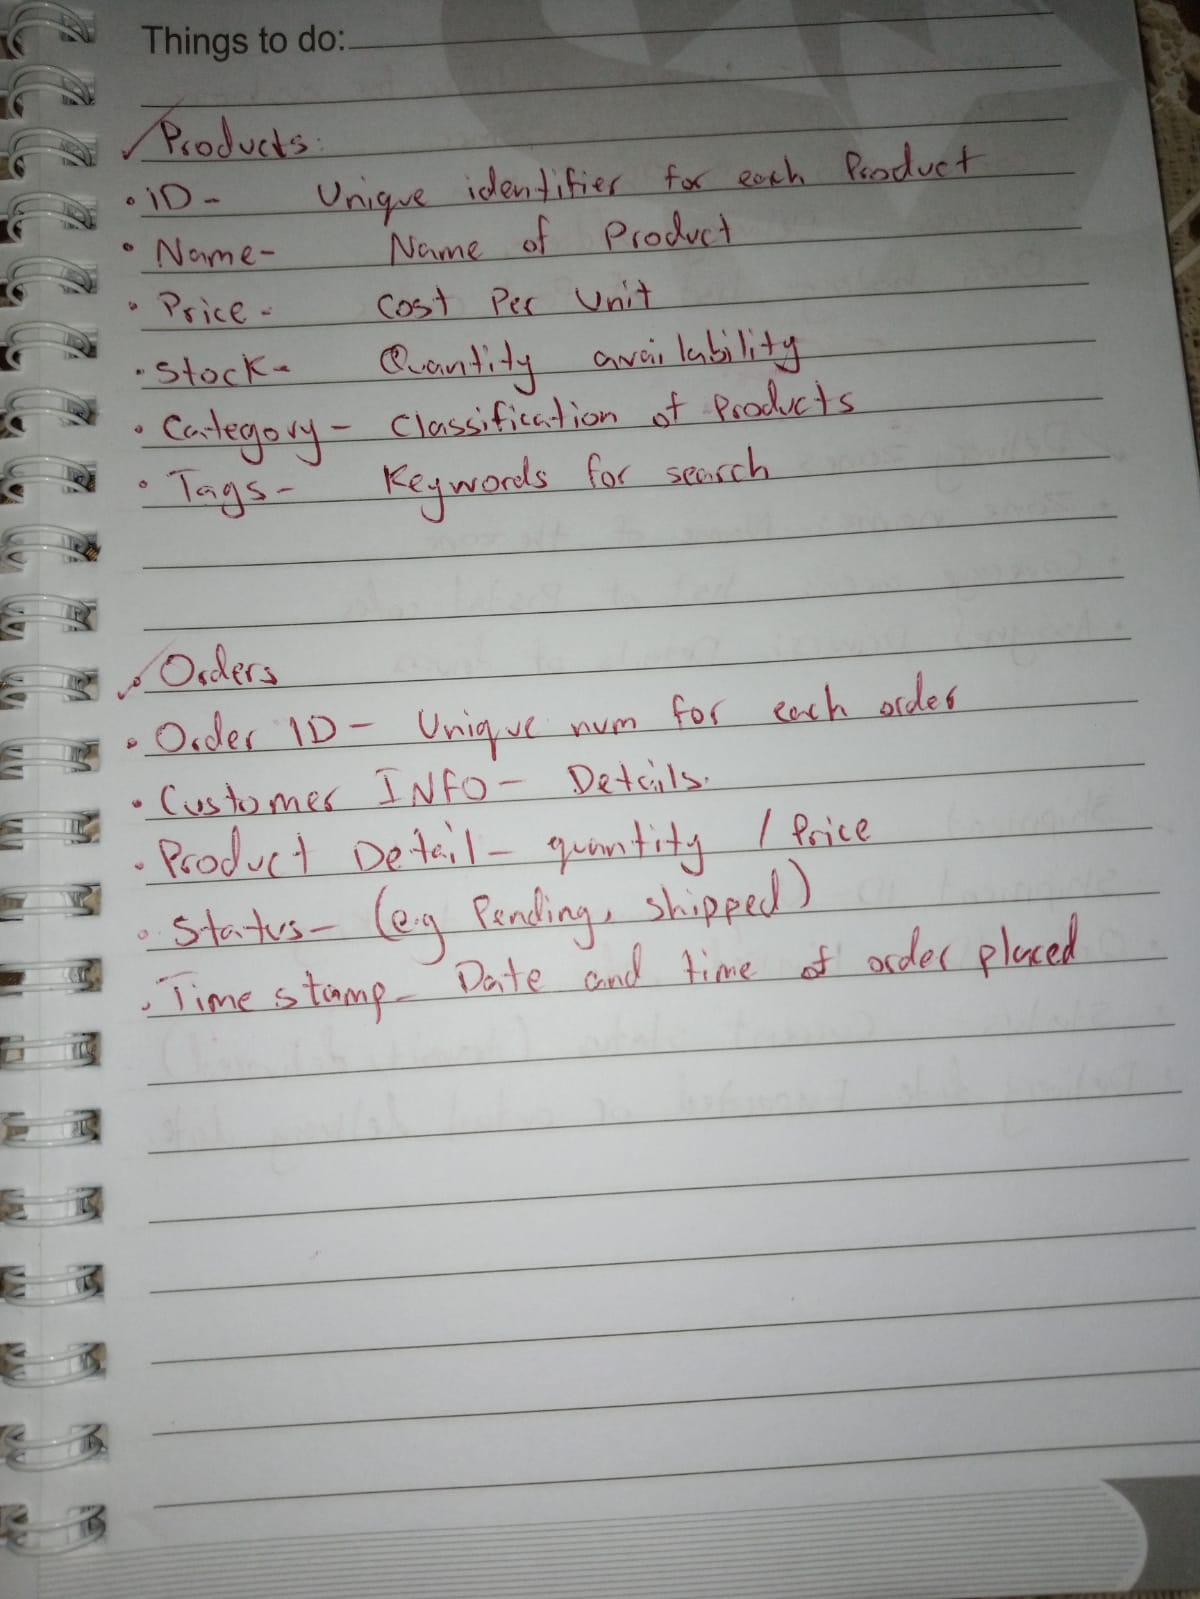 Things to do:
Products:
• ID - Unique identifier for each Product
• Name - Name of Product
• Price - Cost Per Unit
• Stock - Quantity availability
• Category - Classification of Products
• Tags - Keywords for search
Orders
• Order ID - Unique num for each order
• Customer INFO - Details.
• Product Detail - quantity / Price
• Status - (e.g Pending, shipped)
• Time stamp - Date and time of order placed